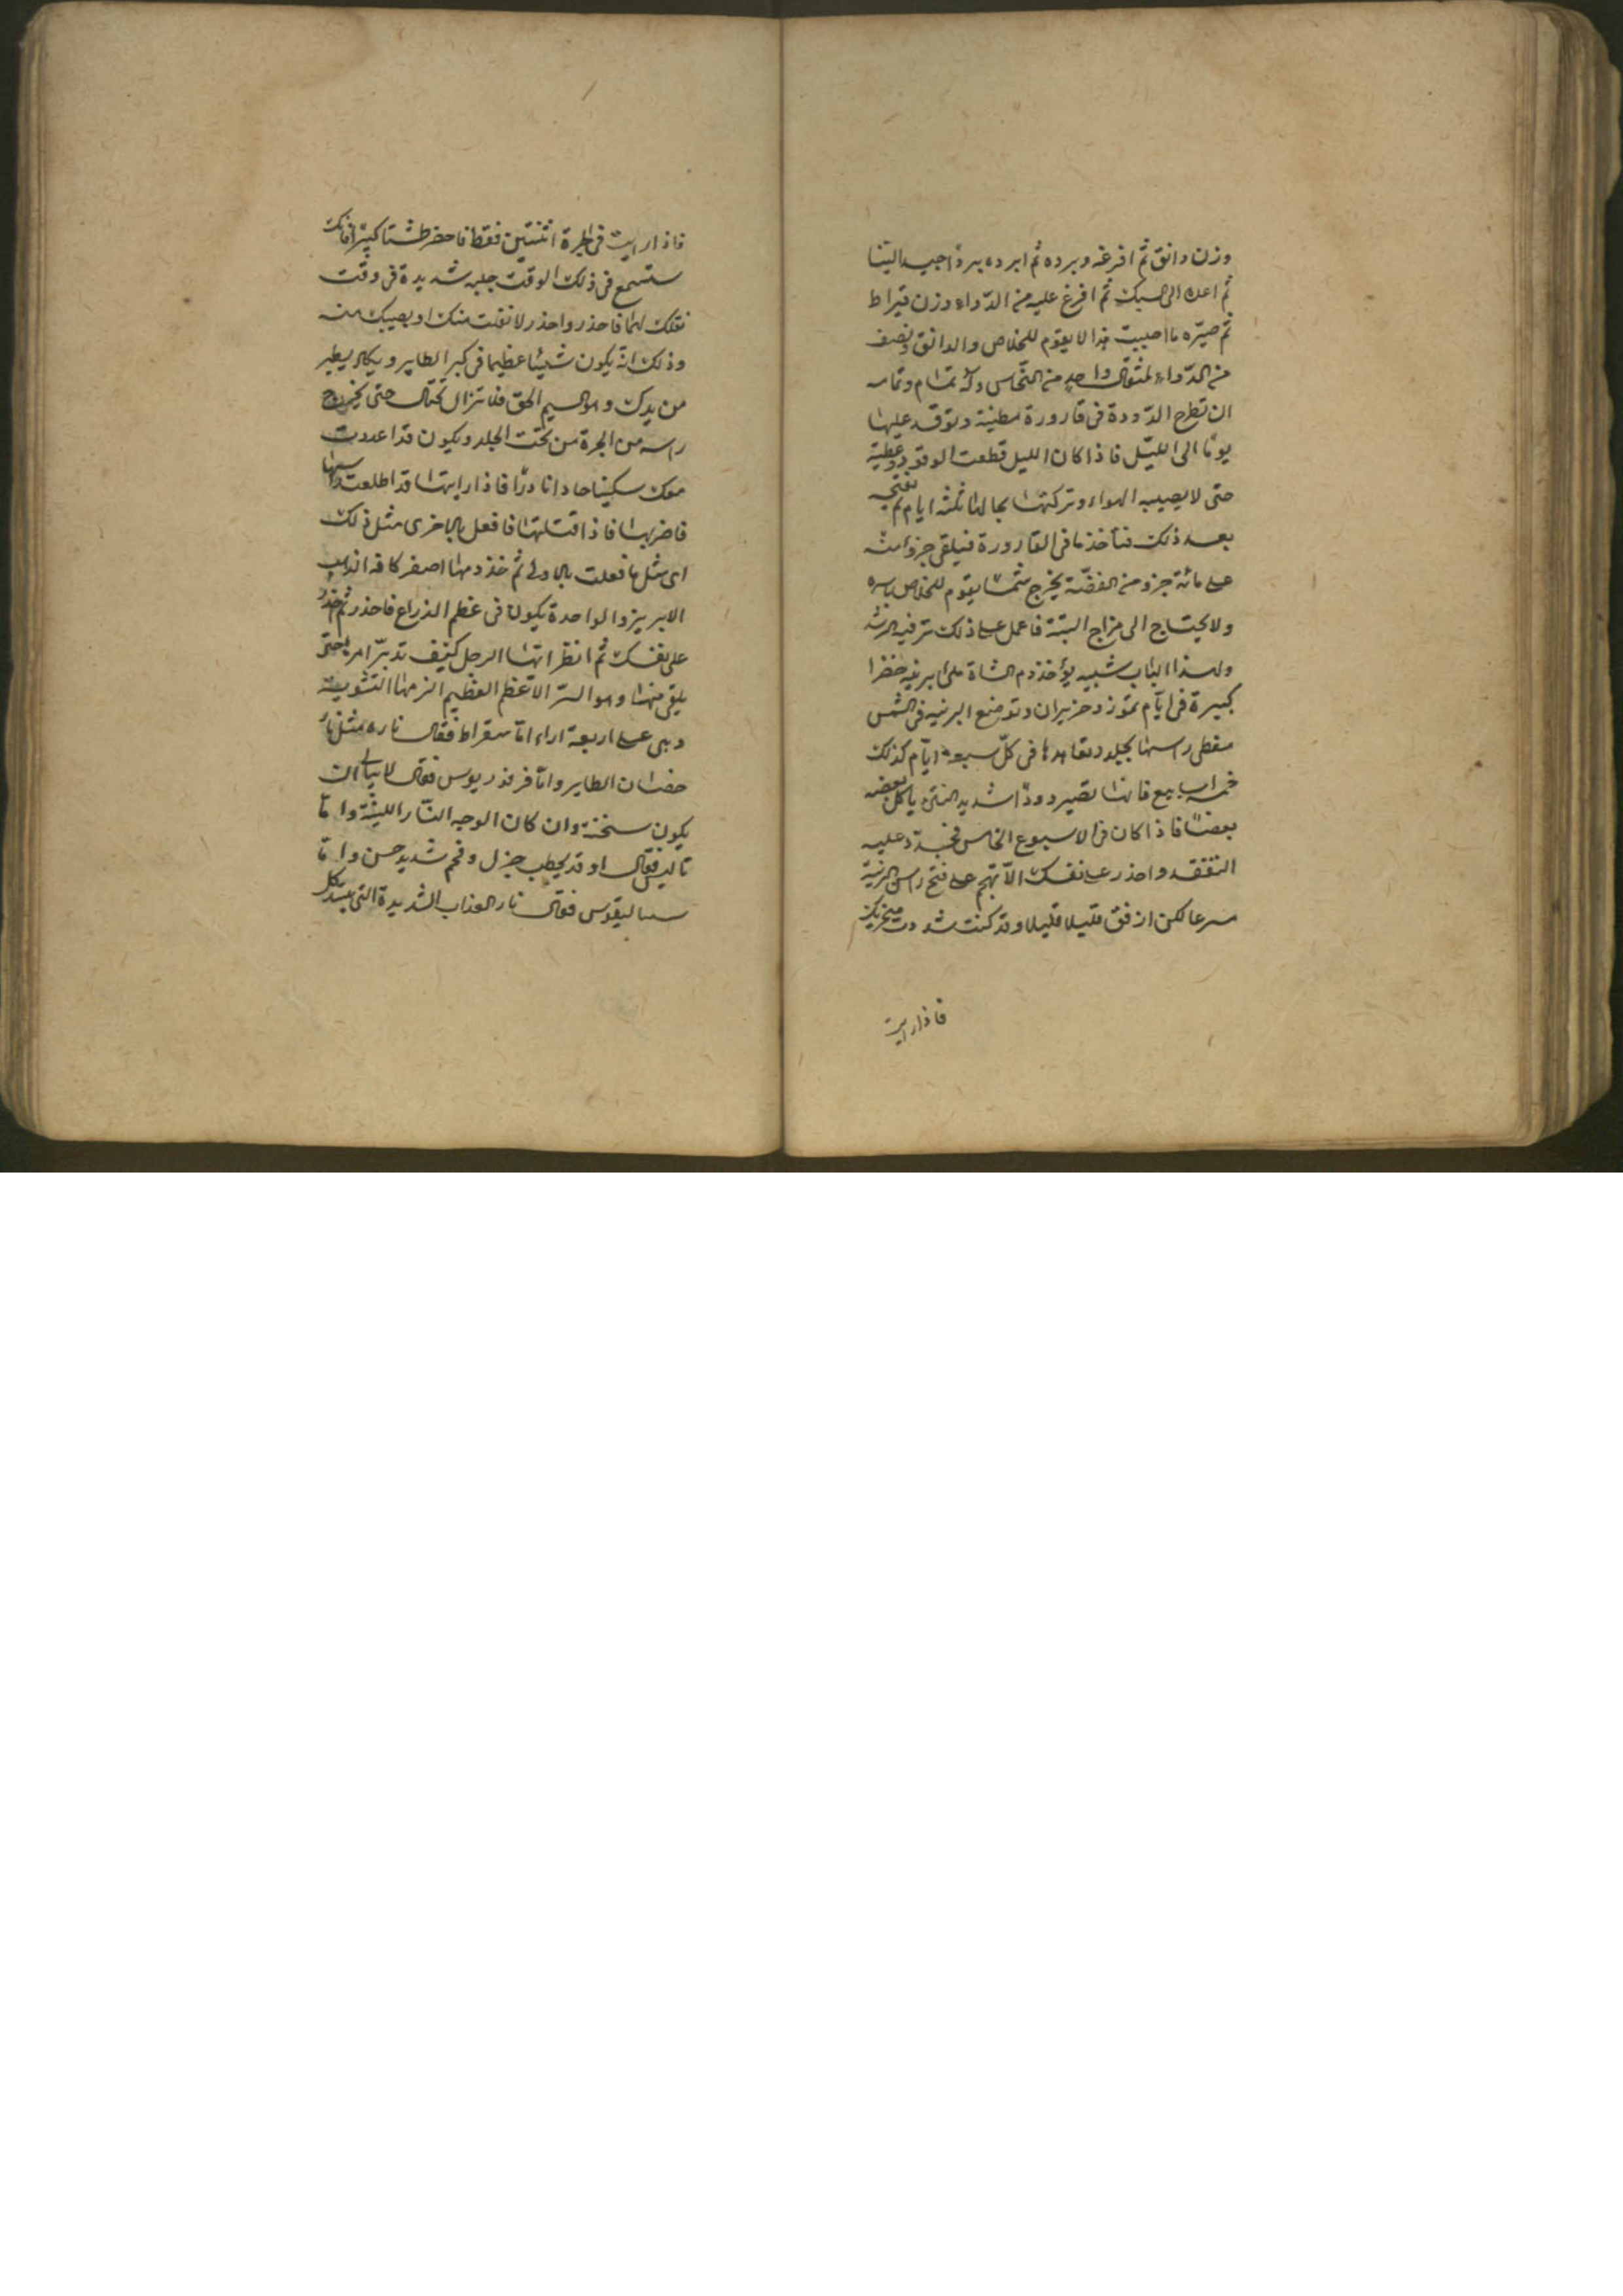 وزن دانق ثم افرغه وبرده ثم ابرده بردًا جيدا لينا
ثم اعده الى السبك ثم افرغ عليه من الدّواء وزن قيراط
ثم صيّره ما احببت فهذا لا يقوم للخلاص والدانق ونصف
من الدّواء لمثقال واحد من النّحاس وله تمام وتمامه
ان تطرح الدّودة فى قارورة مطينة وتوقد عليها
يومًا الى الليل فاذا كان الليل قطعت الوقود وغطيته
حتى لا يصيبه الهواء وتركتها بحالها ثلثه ايام ثم تفتحه
بعد ذلك فتأخذ ما فى القارورة فيلقى جزواً منه
على مائة جزو من الفضّة يخرج شمسا يقوم للخلاص باسره
ولا يحتاج الى مزاج البتّة فاعمل على ذلك ترفيه الرشد
ولهذا الباب شبيه يؤخذ دم الشاة ملئ برنيه خضرا
كبيرة فى ايّام تموز وحزيران وتوضع البرنيه فى الشمس
مغطى راسها بجلد وتعاهدها فى كلّ سبعة ايّام كذلك
خمسه اسابيع فانها تصير دودًا شديد النتن ياكل بعضه
بعضًا فاذا كان فى الاسبوع الخامس فجدّد عليه
التفقد واحذر على نفسك الّا تهجم على فتح راس البرنية
مسرعا لكن ارفق قليلا قليلا وقد كنت شددت منخريك
فاذا رايت
فاذا رايت فى الجرة اثنتين فقط فاحضر طشتا كبيرًا فانك
ستسمع فى ذلك الوقت جلبه شديدة فى وقت
نقلك لهما فاحذر واحذر لا تفلت منك او يصيبك منه
وذلك انّه يكون شيئا عظيما فى كبر الطاير ويكاد يطير
من يدك وهو السم الحق فلا تزال تحتال حتى يخرج
راسه من الجرة من تحت الجلد ويكون قد اعددت
معك سكينا حادا نادرًا فاذا رايتها قد اطلعت راسها
فاضربها فاذا قتلتها فافعل بالاخرى مثل ذلك
اى مثل ما فعلت بالاولى ثم خذ دمها اصفر كانه الذهب
الابريز والواحدة يكون فى عظم الذراع فاحذر ثم احذر
على نفسك ثم انظر ايها الرجل كيف تدبّر امرها حتى
يلقى منها وهو السرّ الاعظم العظيم الزمها التشوية
وهى على اربعة اراء امّا سقراط فقال ناره مثل نار
حضان الطاير وامّا فرفوريوس فقال لا نبالى ان
يكون سخنة وان كان الوجه النّار اللينة وامّا
ثاليس فقال اوقد بحطب جزل وفحم شديد حسن وامّا
فقال نار العذاب الشديدة التى